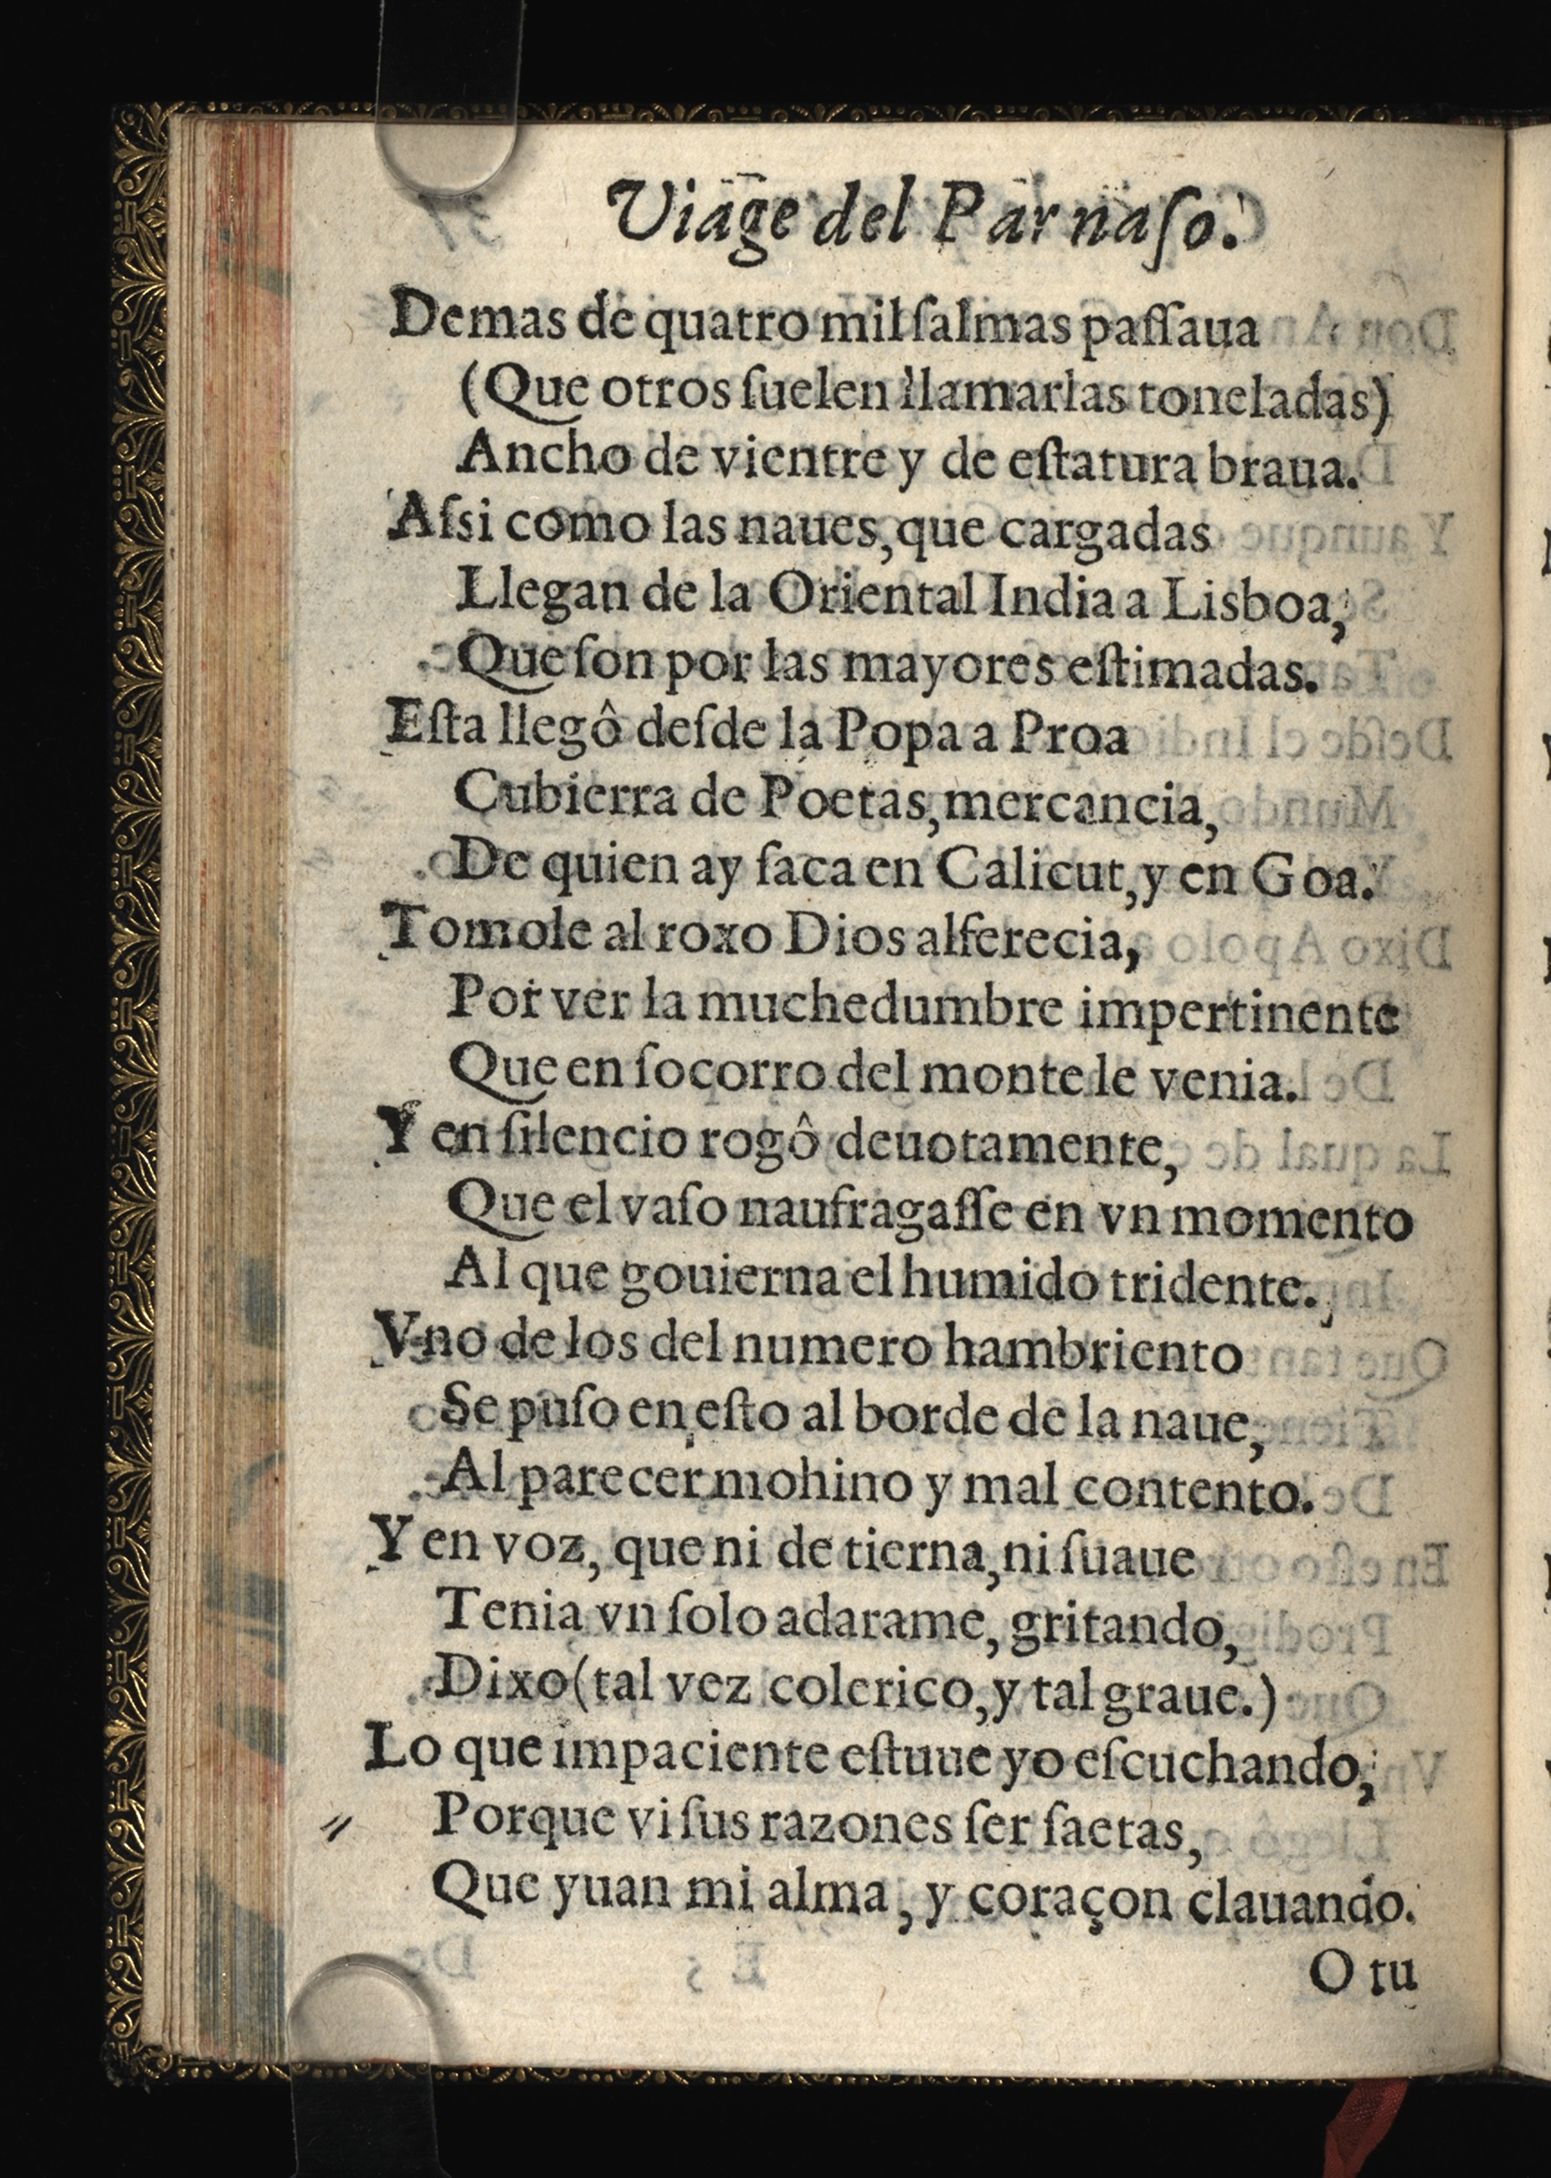 Viage del Parnaſo.
Demas de quatro mil ſalmas paſſaua
(Que otros ſuelen llamarlas toneladas)
Ancho de vientre y de eſtatura braua.
Aſsi como las naues, que cargadas
Llegan de la Oriental India a Lisboa,
Que ſon por las mayores eſtimadas.
Eſta llegô deſde la Popa a Proa
Cubierra de Poetas, mercancia,
De quien ay ſaca en Calicut, y en Goa.
Tomole al roxo Dios alferecia,
Por ver la muchedumbre impertinente
Que en ſocorro del monte le venia.
Y en ſilencio rogô deuotamente,
Que el vaſo naufragaſſe en vn momento
Al que gouierna el humido tridente.
Vno de los del numero hambriento
Se puſo en eſto al borde de la naue,
Al parecer mohino y mal contento.
Y en voz, que ni de tierna, ni ſuaue
Tenia vn ſolo adarame, gritando,
Dixo (tal vez colerico, y tal graue.)
Lo que impaciente eſtuue yo eſcuchando,
Porque vi ſus razones ſer ſaetas,
Que yuan mi alma, y coraçon clauando.
O tu